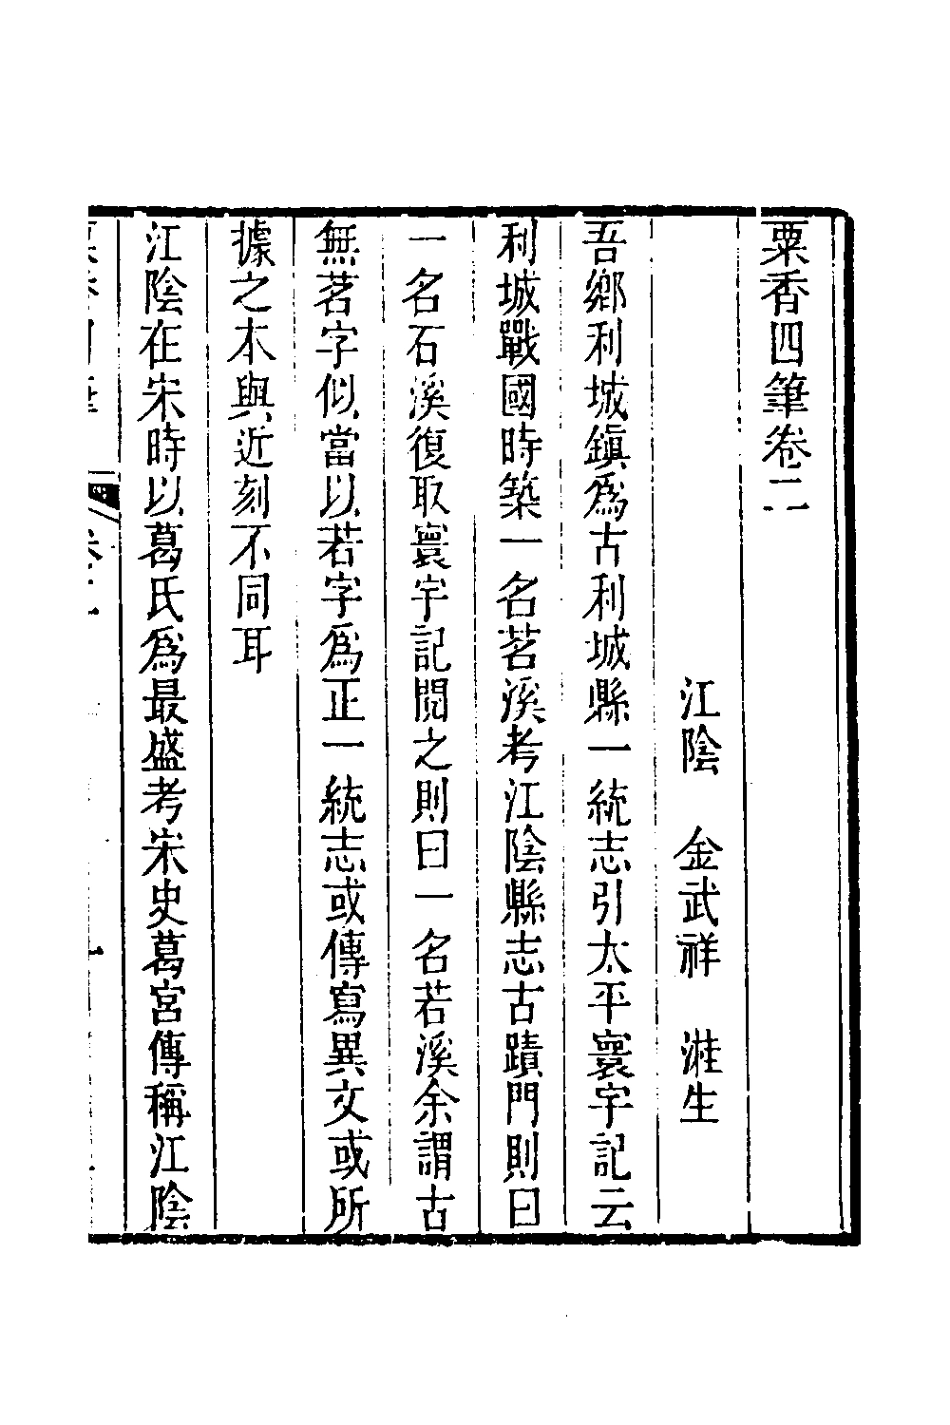 粟香四筆卷二
江陰　金武祥　溎生
吾鄉利城鎭爲古利城縣一統志引太平寰宇記云
利城戰國時築一名茗溪考江陰縣志古蹟門則曰
一名石溪復取寰宇記閱之則曰一名若溪余謂古
無茗字似當以若字爲正一統志或傳寫異文或所
據之本與近刻不同耳
江陰在宋時以葛氏爲最盛考宋史葛宮傳稱江陰